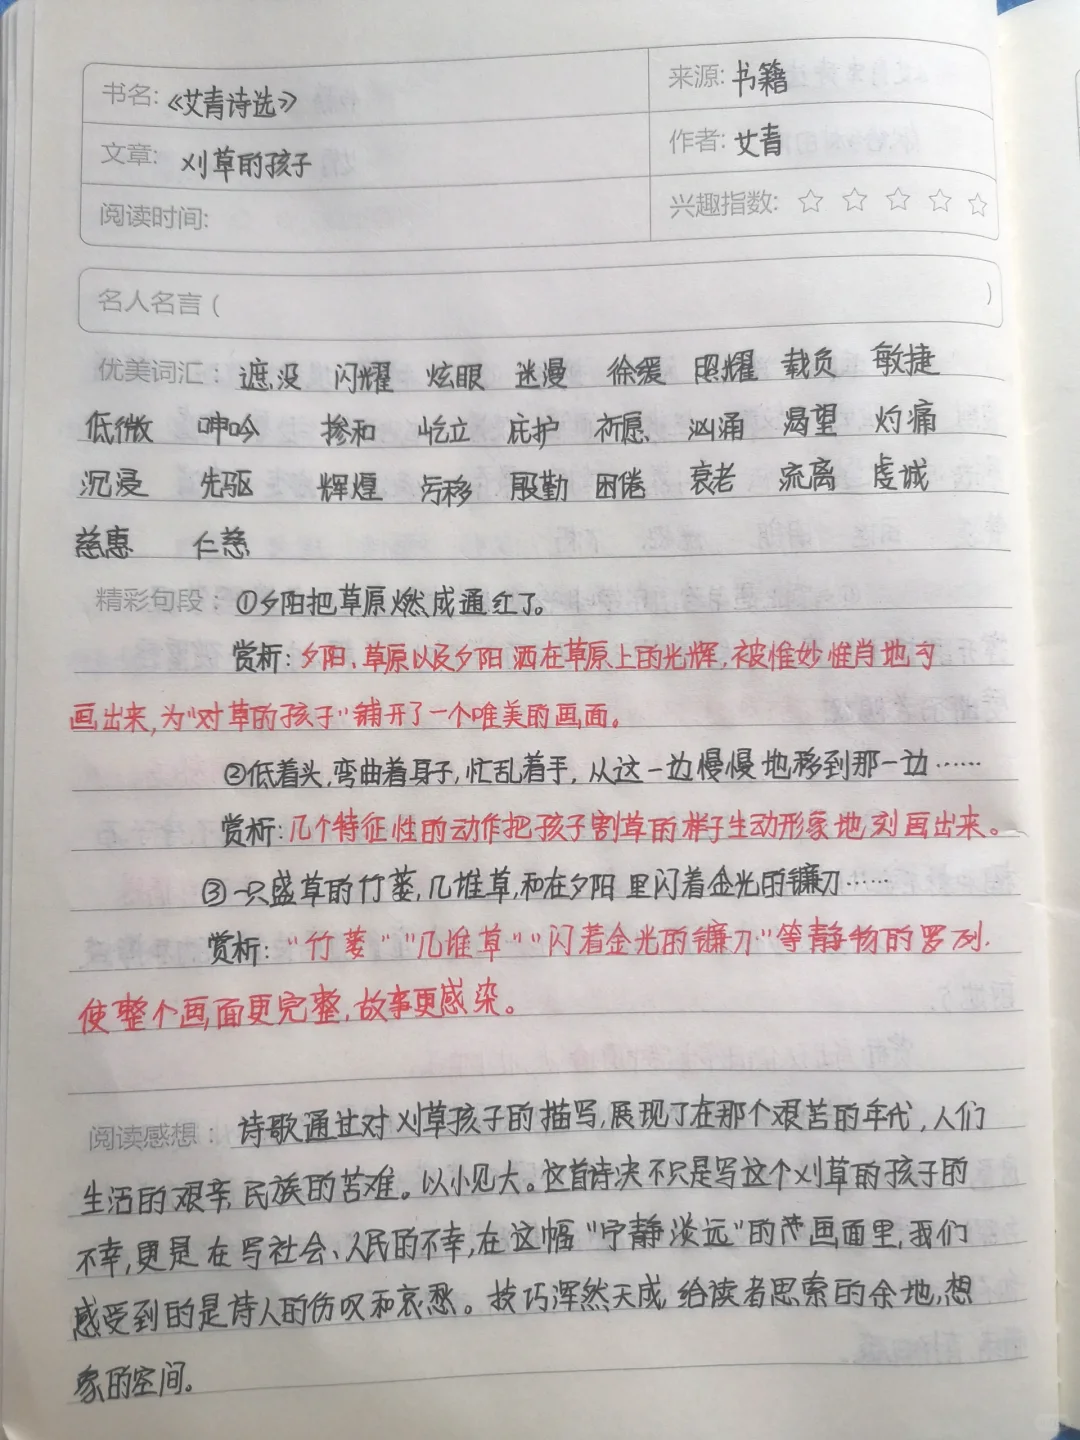 书名: 《艾青诗选》 来源: 书籍
文章: 刈草的孩子 作者: 艾青
阅读时间: 兴趣指数: ☆ ☆ ☆ ☆ ☆
名人名言 ( )
优美词汇: 遮没 闪耀 炫眼 迷漫 徐缓 照耀 载负 敏捷
低微 呻吟 掺和 屹立 庇护 祈愿 汹涌 渴望 灼痛
沉浸 先驱 辉煌 污秽 殷勤 困倦 衰老 流离 虔诚
慈惠 仁慈
精彩句段: ①夕阳把草原燃成通红了。
赏析: 夕阳、草原以及夕阳洒在草原上的光辉,被惟妙惟肖地勾
画出来,为“对草的孩子”铺开了一个唯美的画面。
②低着头,弯曲着身子,忙乱着手,从这一边慢慢地移到那一边……
赏析: 几个特征性的动作把孩子割草的样子生动形象地刻画出来。
③一只盛草的竹蒌,几堆草,和在夕阳里闪着金光的镰刀……
赏析: “竹蒌”“几堆草”“闪着金光的镰刀”等静物的罗列,
使整个画面更完整,故事更感染。
阅读感想: 诗歌通过对刈草孩子的描写,展现了在那个艰苦的年代,人们
生活的艰辛,民族的苦难。以小见大。这首诗决不只是写这个刈草的孩子的
不幸,更是在写社会、人民的不幸,在这幅“宁静淡远”的画面里,我们
感受到的是诗人的伤叹和哀愁。技巧浑然天成,给读者思索的余地,想
象的空间。